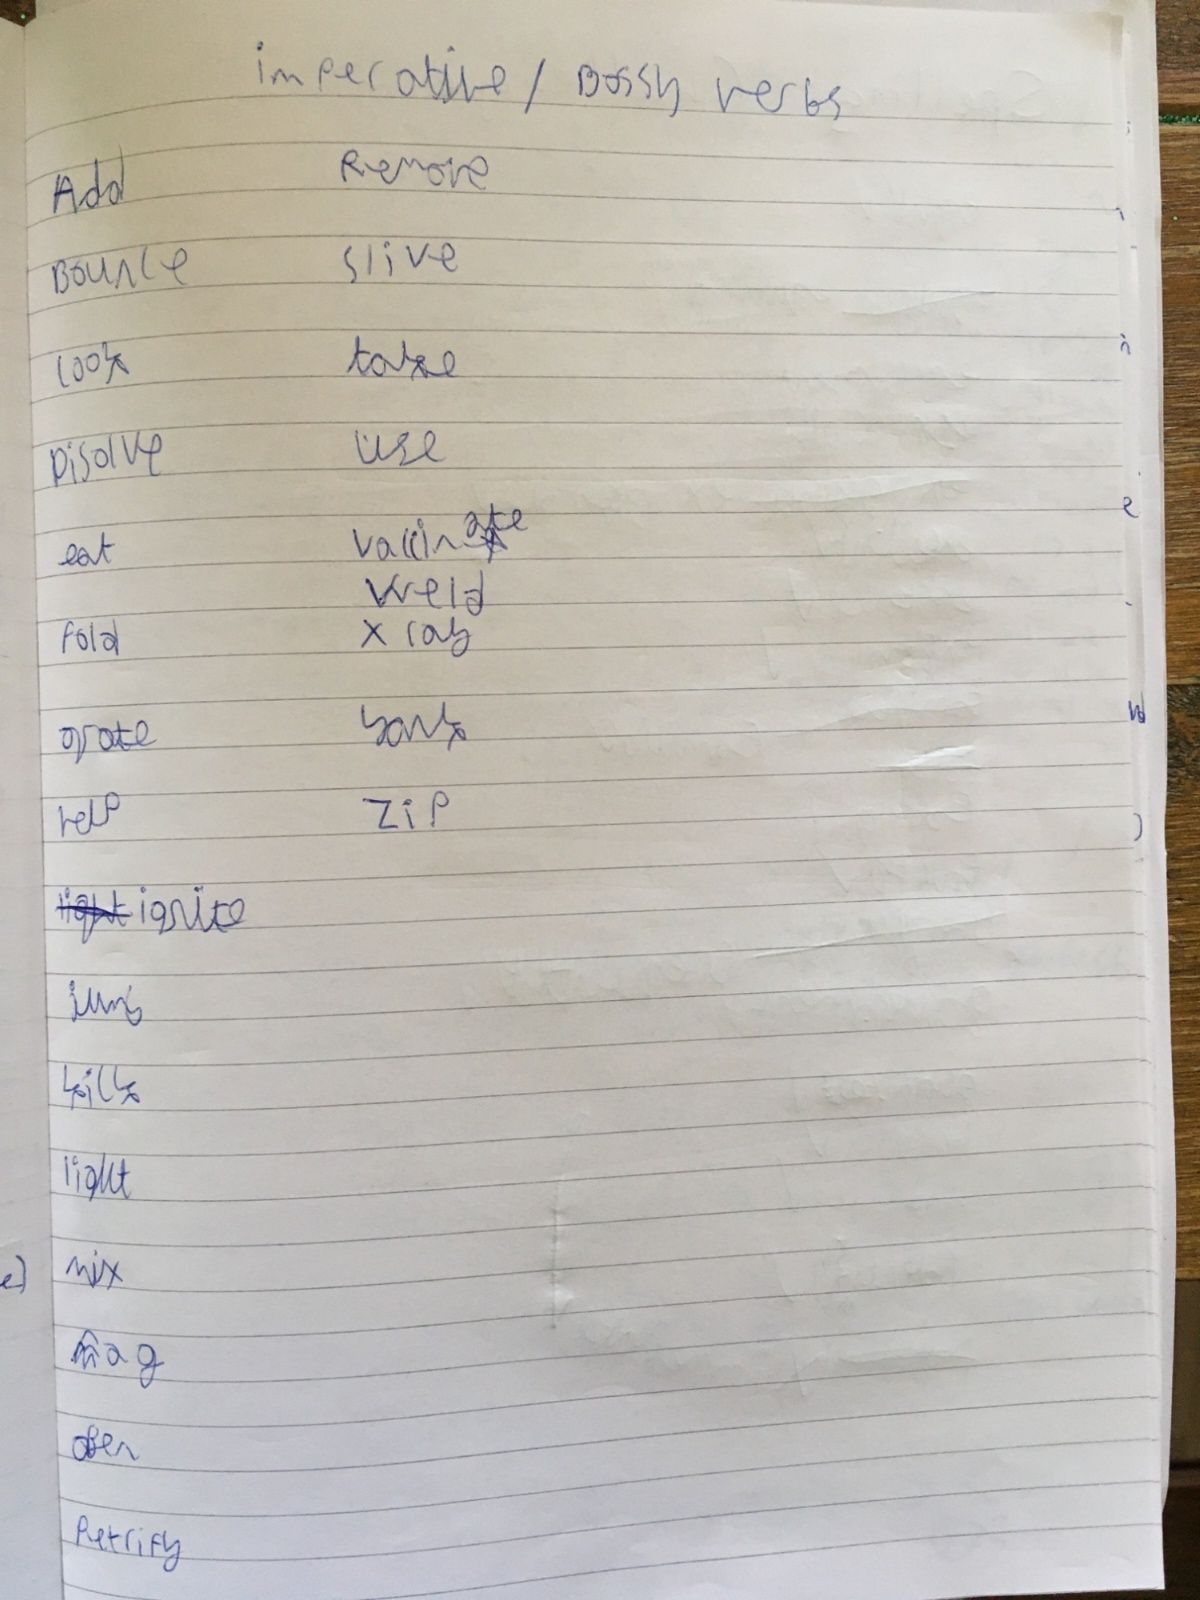 imperative / Bossy verbs
Add
Bounce
cook
Disolve
eat
fold
grate
help
light ignite
jump
kick
light
mix
nag
open
Petrify
Remove
slive
take
use
vaccinate
weld
x ray
yank
zip